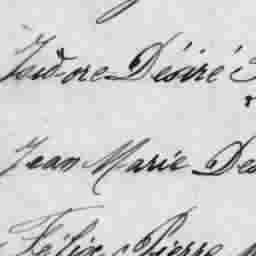 Isidore Désiré
Jean Marie
Félix Pierre